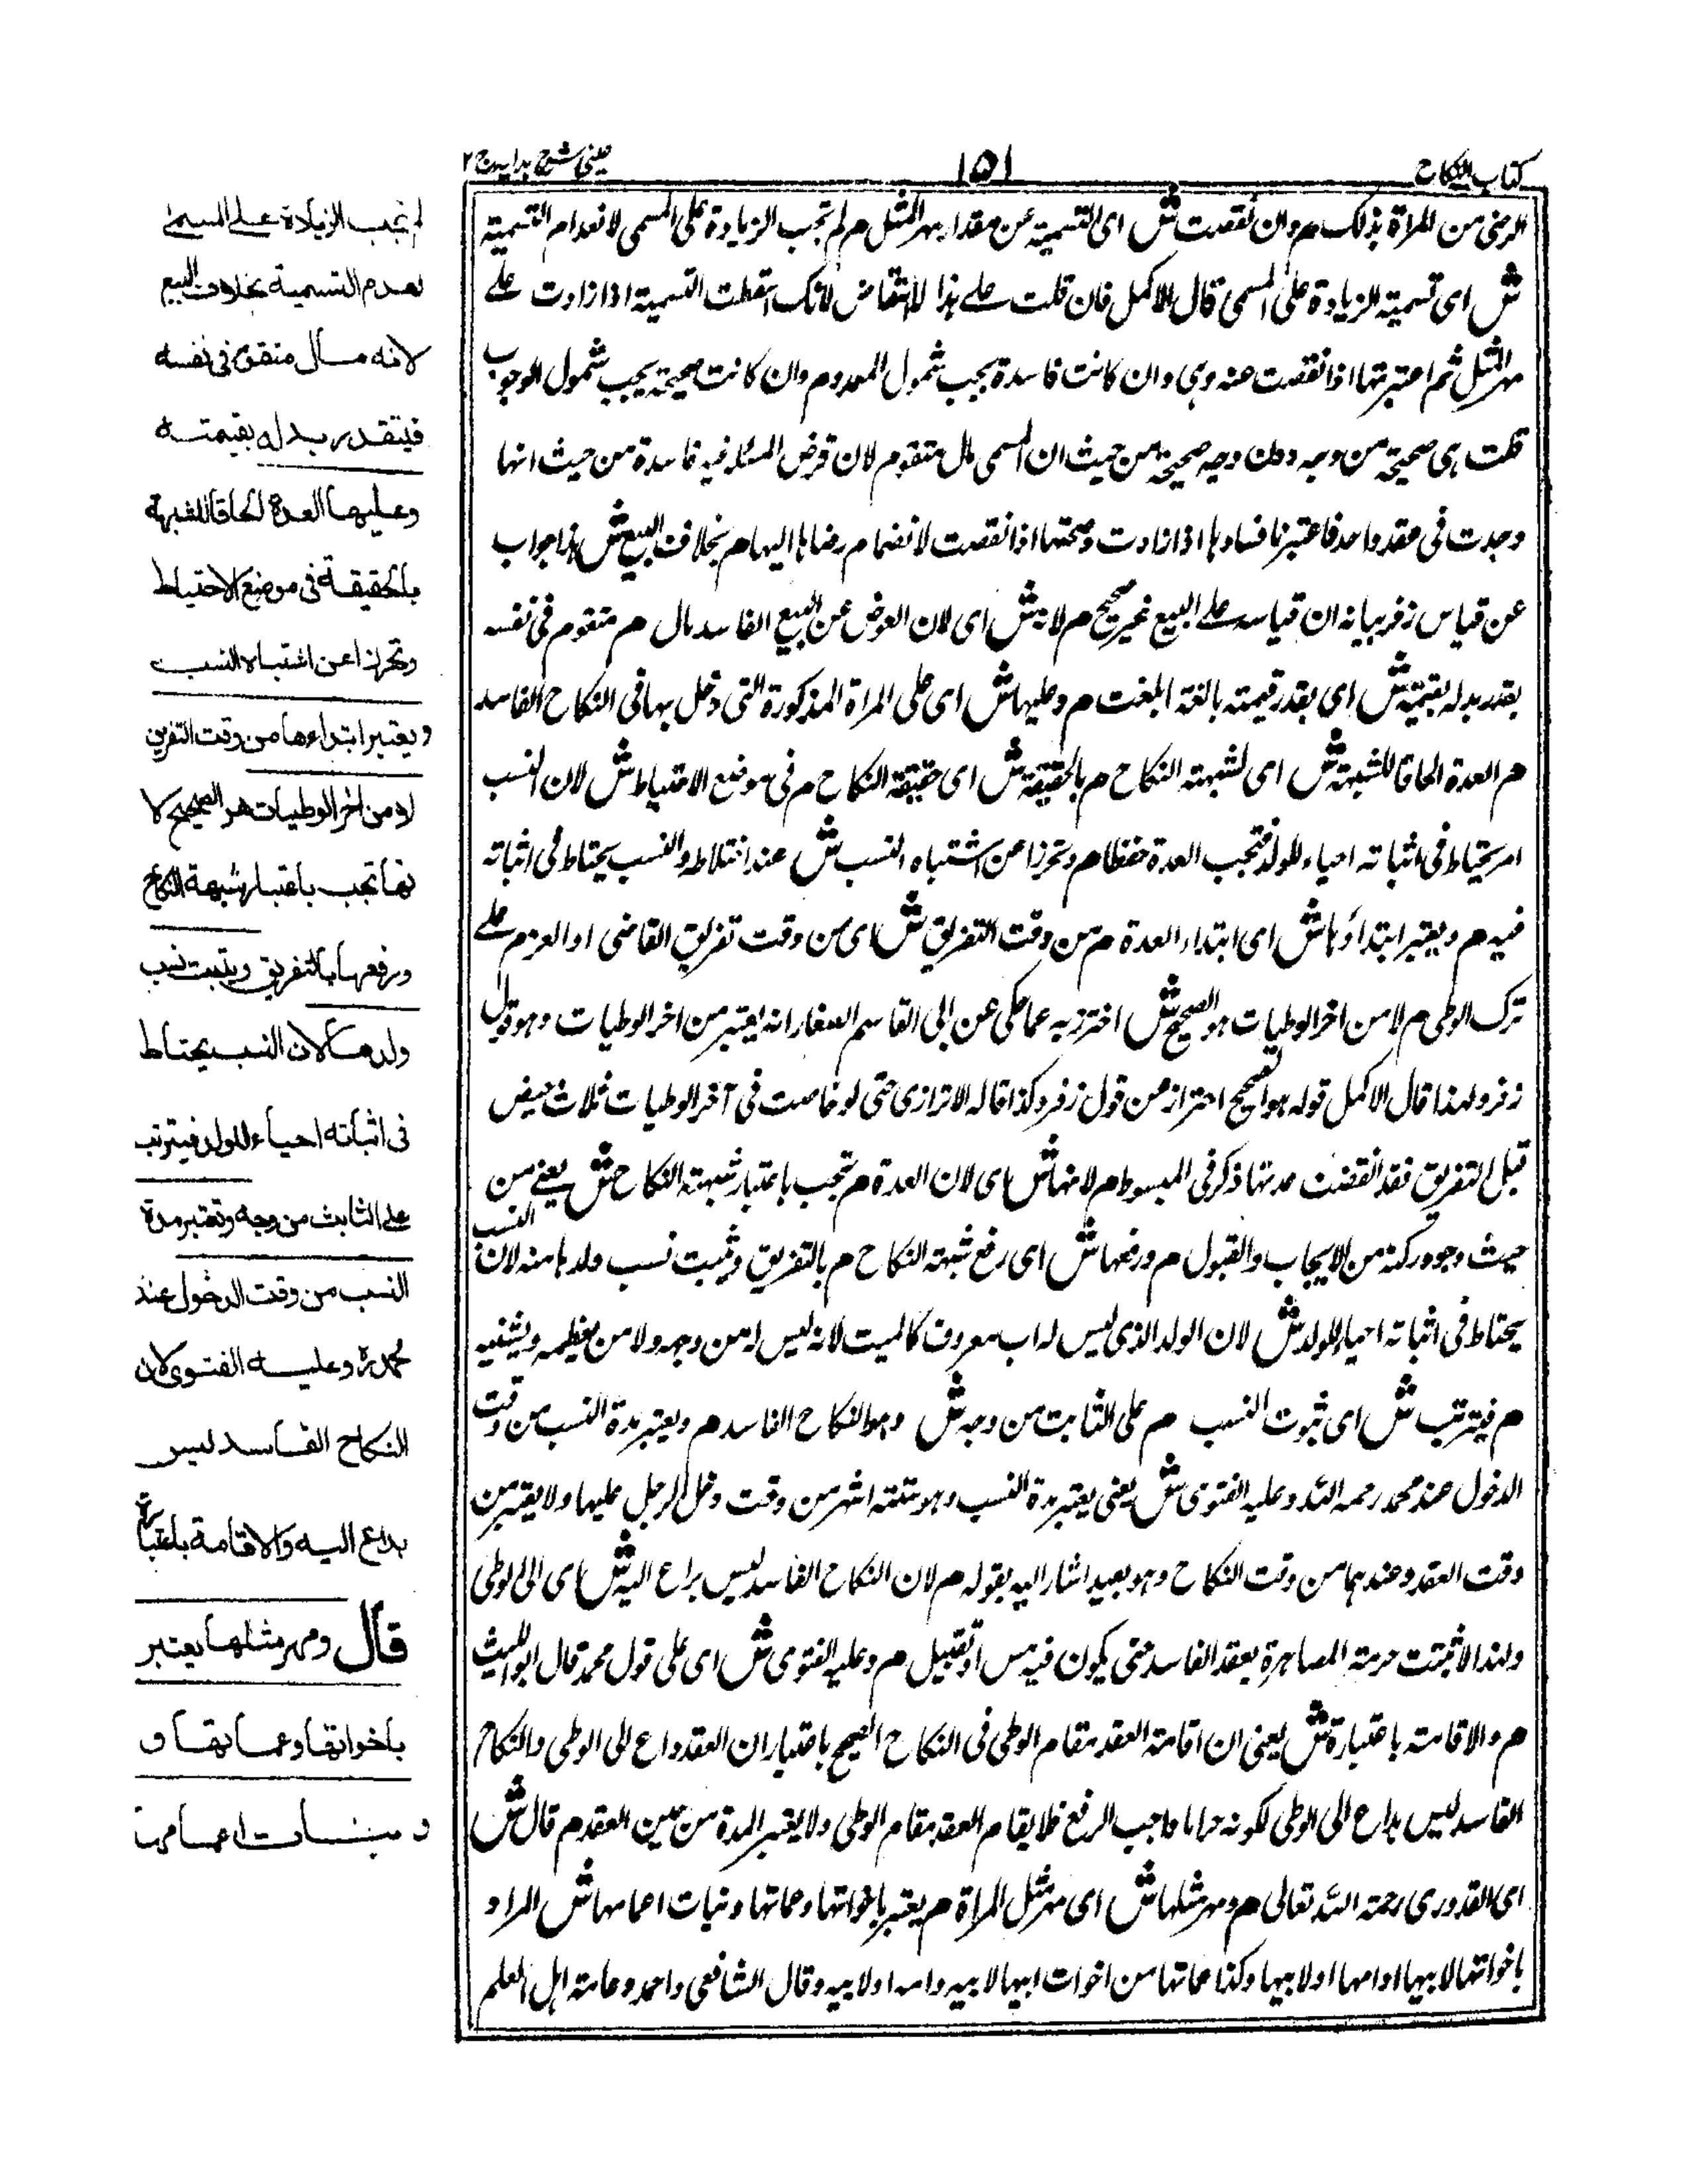 كتاب النكاح
١٥١
عینی شرح ہدایہ ج ٢
الرضى من المراة بذلك م وان نقصت ش اى التسمية عن مقدار مهر المثل م لم تجب الزيادة على المسمى لانعدام التسمية
ش اى تسمية الزيادة على المسمى قال الاكمل فان قلت على هذا لانتقاض لانك اسقطت التسمية اذا زادت على
مهر المثل ثم اعتبرتها اذا نقصت عنه وهى وان كانت فاسدة يجب شمول العدم وان كانت صحيحة يجب شمول الوجوب
قلت هى صحيحة من وجه دون وجه صحيحة من حيث ان المسمى مال متقوم لان فرض المسئلة فيه فاسدة من حيث انها
وجدت فى عقد واحد فاعتبرنا فسادها اذا زادت وصحتها اذا نقصت لانضمام رضاها اليها م بخلاف البيع ش هذا جواب
عن قياس زفر بيانه ان قياسه على البيع غير صحيح م لانه ش اى لان العوض عن البيع الفاسد مال م متقوم فى نفسه
بقدر بدله بقيمته ش اى بقدر قيمته بالغة ما بلغت م وعليها ش اى على المراة المذكورة التى دخل بها فى النكاح الفاسد
م العدة الحاقا للشبهة ش اى لشبهة النكاح م بالحقيقة ش اى حقيقة النكاح م فى موضع الاحتياط ش لان النسب
امر يحتاط فى اثباته احياء للولد فتجب العدة حفظا م وتحرزا عن اشتباه النسب ش عند اختلاط والنسب يحتاط فى اثباته
فيه م ويعتبر ابتداؤها ش اى ابتداء العدة م من وقت التفريق ش اى من وقت تفريق القاضى او العزم على
ترك الوطى م لا من اخر الوطيات هو الصحيح ش احترز به عما حكى عن ابى القاسم الصفار انه يعتبر من اخر الوطيات وهو قول
زفر ولهذا قال الاكمل قوله هو الصحيح احتراز من قول زفر وكذا قاله الاترازى حتى لو حاضت فى آخر الوطيات ثلاث حيض
قبل التفريق فقد انقضت عدتها ذكر فى المبسوط م لانها ش اى لان العدة م تجب باعتبار شبهة النكاح ش يعنى من
حيث وجود ركنه من الايجاب والقبول م ورفعها ش اى رفع شبهة النكاح م بالتفريق ويثبت نسب ولدها منه لان النسب
يحتاط فى اثباته احياء للولد ش لان الولد الذى ليس له اب معروف كالميت لانه ليس له من وجه ولا من يعظمه ويشفيه
م فيترتب ش اى ثبوت النسب م على الثابت من وجه ش وهو النكاح الفاسد م ويعتبر مدة النسب من وقت
الدخول عند محمد رحمه الله وعليه الفتوى ش يعنى يعتبر مدة النسب وهو ستة اشهر من وقت دخل الرجل عليها ولا يعتبر من
وقت العقد وعندهما من وقت النكاح وهو بعيد اشار اليه بقوله م لان النكاح الفاسد ليس بداع اليه ش اى الى الوطى
ولهذا لا تثبت حرمة المصاهرة بعقد الفاسد حتى يكون فيه مس او تقبيل م وعليه الفتوى ش اى على قول محمد قال ابو الليث
م والاقامة باعتباره ش يعنى ان اقامة العقد مقام الوطى فى النكاح الصحيح باعتبار ان العقد داع الى الوطى والنكاح
الفاسد ليس بداع الى الوطى لكونه حراما واجب الرفع فلا يقام العقد مقام الوطى ولا يعتبر المدة من حين العقد م قال ش
اى القدورى رحمة الله تعالى م ومهر مثلها ش اى مهر مثل المراة م يعتبر باخواتها وعماتها وبنات اعمامها ش المراد
باخواتها لابيها وامها او لابيها وكذا عماتها من اخوات ابيها لابيه وامه او لابيه وقال الشافعى واحمد وعامة اهل العلم
لم تجب الزيادة على المسمى
لعدم التسمية بخلاف البيع
لانه مال متقوم فى نفسه
فيتقدر بدله بقيمته
وعليها العدة الحاقا للشبهة
بالحقيقة فى موضع الاحتياط
وتحرزا عن اشتباه النسب
ويعتبر ابتداءها من وقت التفريق
لا من اخر الوطيات هو الصحيح لا
نها تجب باعتبار شبهة النكاح
ورفعها بالتفريق ويثبت نسب
ولدها لان النسب يحتاط
فى اثباته احياء للولد فيترتب
على الثابت من وجه وتعتبر مدة
النسب من وقت الدخول عند
محمد رح وعليه الفتوى لان
النكاح الفاسد ليس
بداع اليه والاقامة باعتباره
قال ومهر مثلها يعتبر
باخواتها وعماتها و
و بنات اعمامها